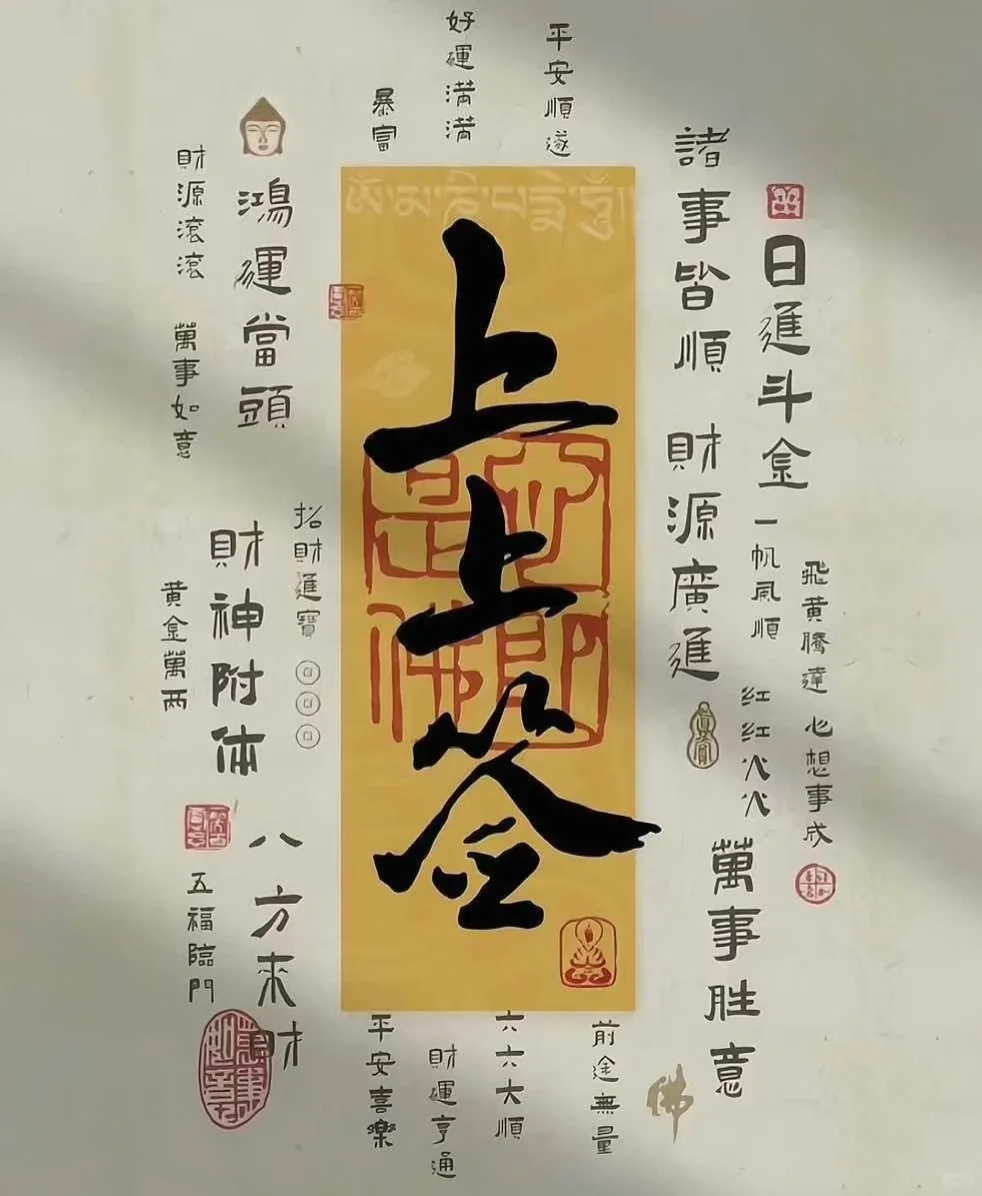 平安順遂
好運満満
暴富
日進斗金
一帆風順
飛黄騰達
心想事成
諸事皆順
財源廣進
红红火火
萬事胜意
佛
ཨོཾ་མ་ཎི་པ་དྨེ་ཧཱུྃ
上上签
心即
是佛
鴻運當頭
財源滾滾
萬事如意
招財進寶
財神附体
黄金萬両
八方来財
五福臨門
萬事
如意
前途無量
六六大順
財運亨通
平安喜樂